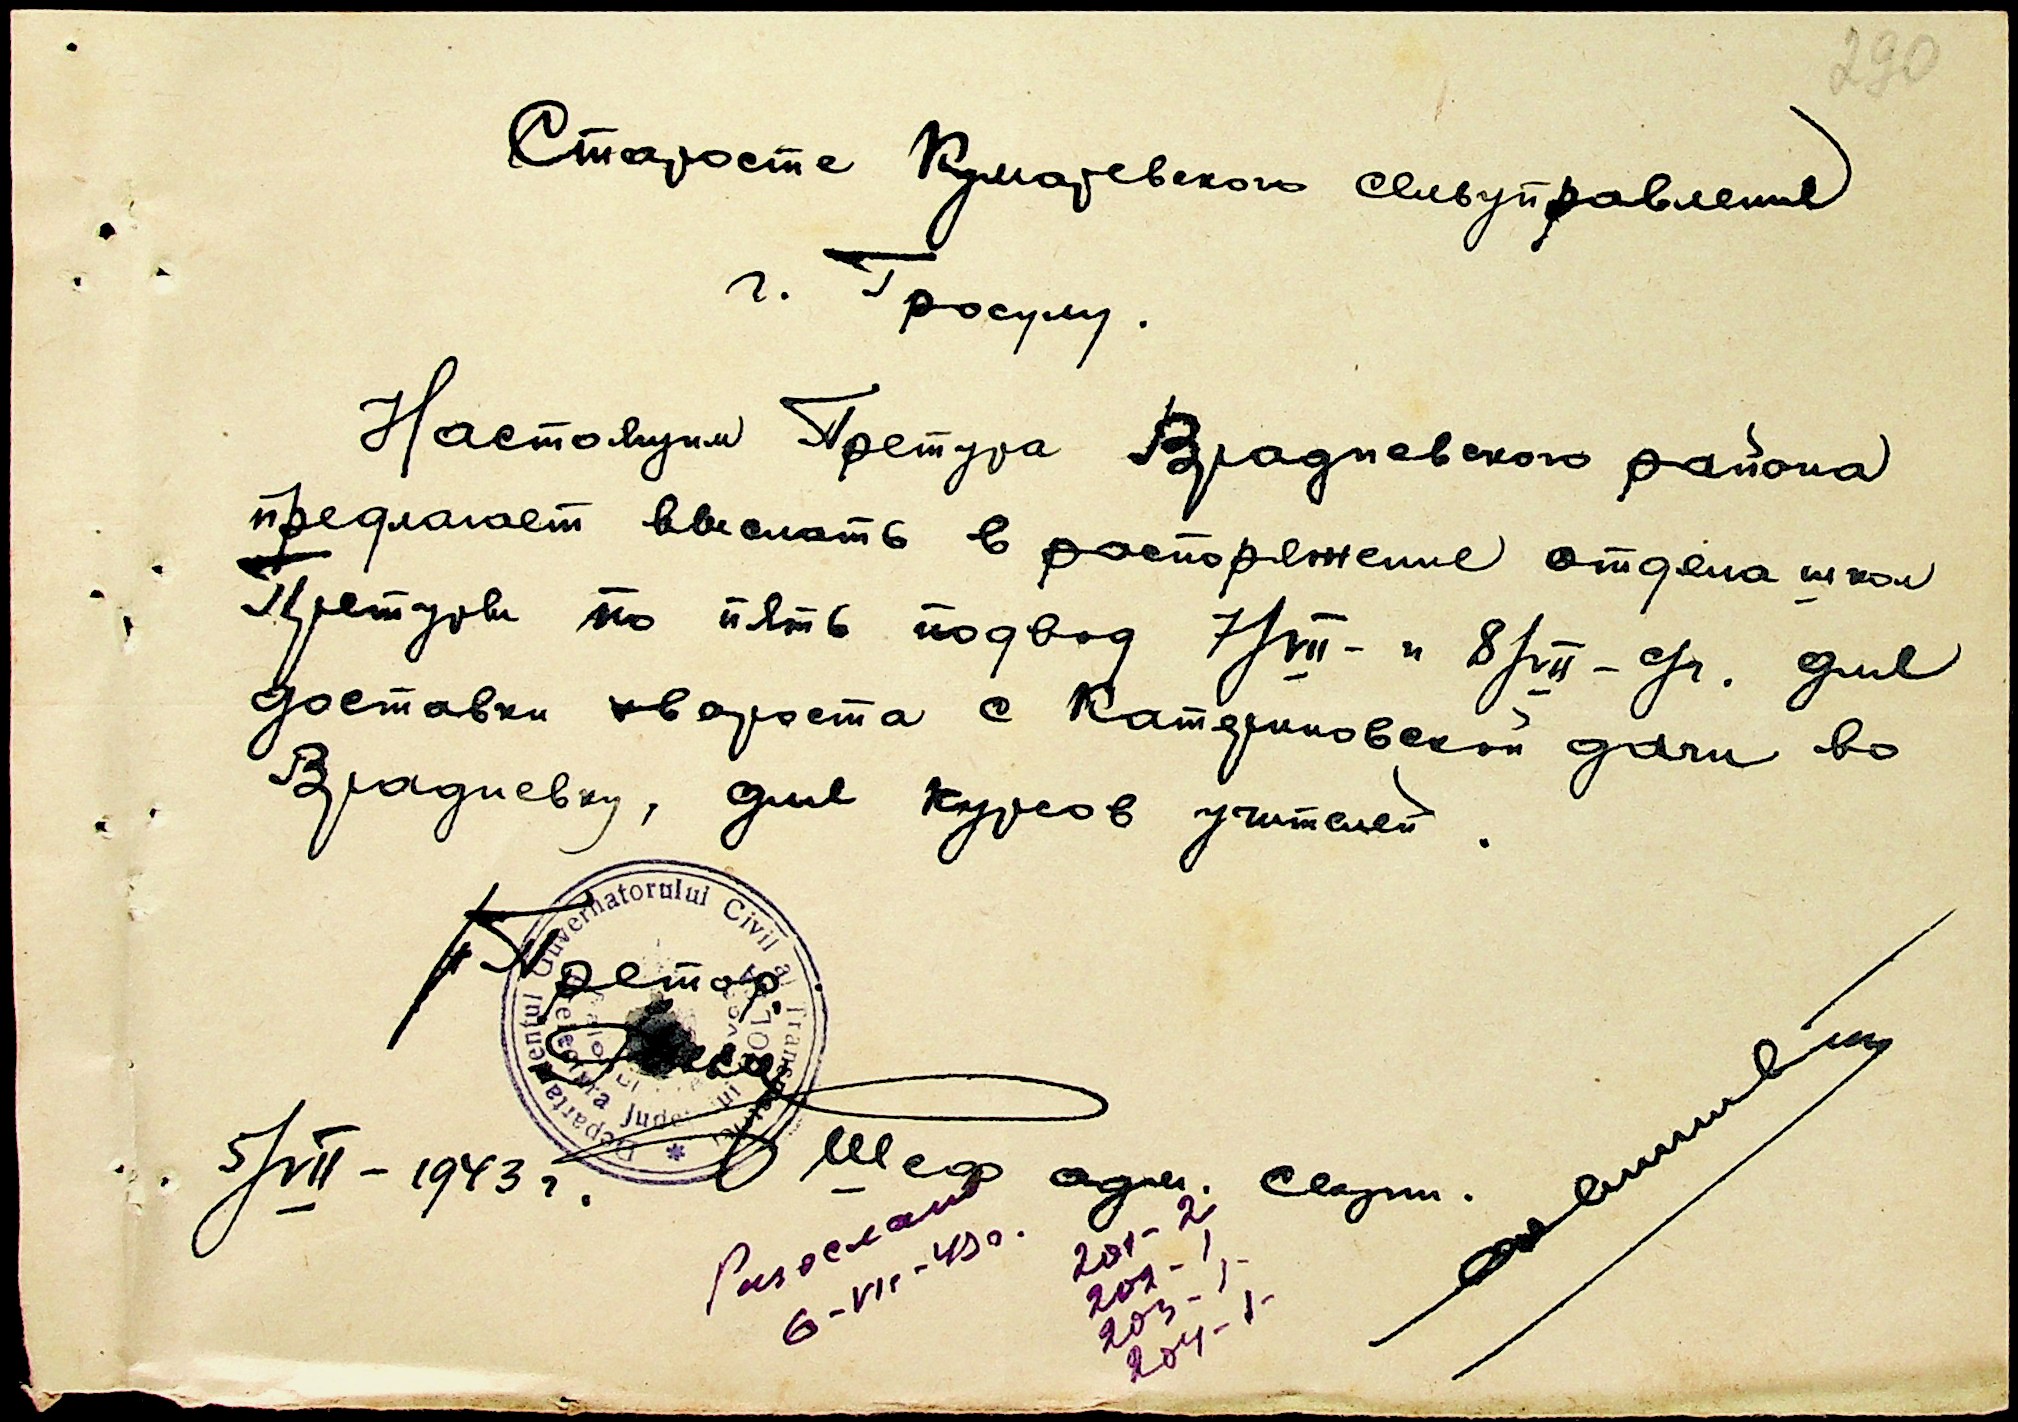 290
Старосте Кумаревского сельуправления
г. Гросулу.
Настоящим Претура Врадиевского района
предлагает выслать в распоряжение отдела школ
Претуры по пять подвод 7/VII- и 8/VII- с/г. для
доставки хвороста с Катериновской дачи во
Врадиевку, для курсов учителей.
Претор:
Departamentul Guvernatorului Civil al Transnistriei
5/VII - 1943 г.
Шеф адм. секции.
Разослано
6-VII-43г.
201-2
202-1
203-1-
204-1-